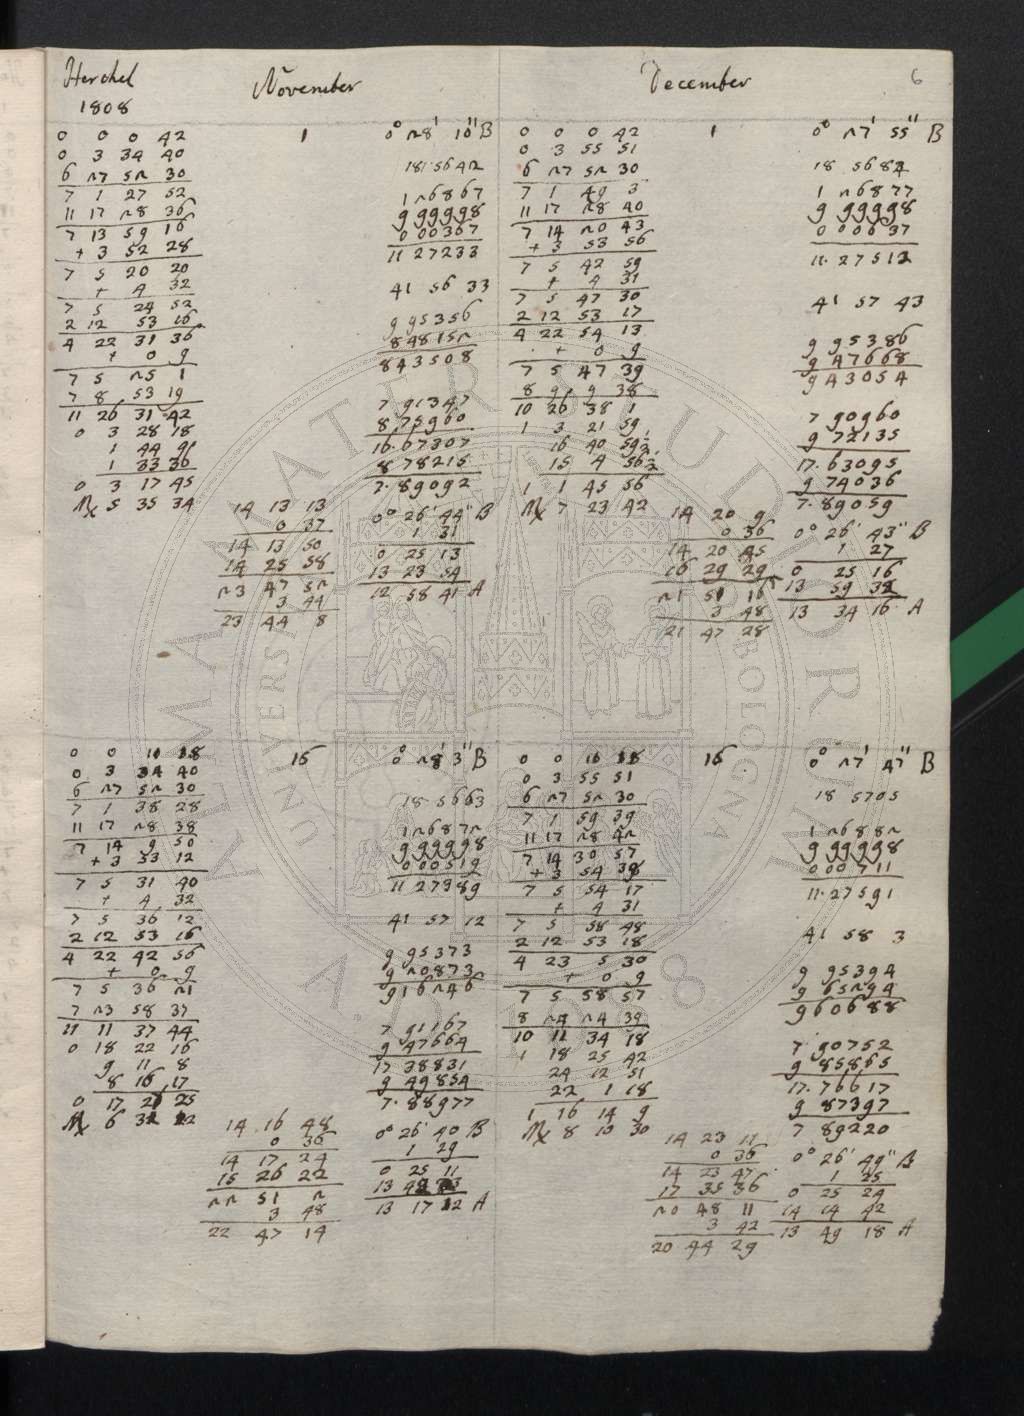 Herchel
1808
November
December
6
0 0 0 42
0 3 34 40
6 27 52 30
7 1 27 52
11 17 28 36
7 13 59 16
+ 3 52 28
7 5 20 20
+ 4 32
7 5 24 52
2 12 53 16
4 22 31 36
+ 0 9
7 5 25 1
7 8 53 19
11 26 31 42
0 3 28 18
1 44 9
1 33 36
0 3 17 45
♏ 5 35 34
1
14 13 13
0 37
14 13 50
14 25 58
23 47 52
3 44
23 44 8
0° 28' 10" B
18 56 42
1 26867
9 99998
0 00367
11 27233
41 56 33
9 95356
8 48152
8 43508
7 91347
8 75960
16.67307
8 78215
7.89092
0° 26' 44" B
1 31
0 25 13
13 23 54
12 58 41 A
0 0 0 42
0 3 55 51
6 27 52 30
7 1 49 3
11 17 28 40
7 14 20 43
+ 3 53 56
7 5 42 59
+ 4 31
7 5 47 30
2 12 53 17
4 22 54 13
+ 0 9
7 5 47 39
8 9 9 38
10 26 38 1
1 3 21 59
16 40 59½
15 4 56½
1 1 45 56
♏ 7 23 42
1
14 20 9
0 36
14 20 45
16 29 29
21 51 16
3 48
21 47 28
0° 27' 55" B
18 56 84
1 26877
9 99998
0 00637
11.27512
41 57 43
9 95386
9 47668
9 43054
7 90960
9 72135
17.63095
9 74036
7.89059
0° 26' 43" B
1 27
0 25 16
13 59 32
13 34 16 A
0 0 10 18
0 3 34 40
6 27 52 30
7 1 38 28
11 17 28 38
7 14 9 50
+ 3 53 12
7 5 31 40
+ 4 32
7 5 36 12
2 12 53 16
4 22 42 56
+ 0 9
7 5 36 21
7 23 58 37
11 11 37 44
0 18 22 16
9 11 8
8 16 17
0 17 26 25
♏ 6 32 22
15
14 16 48
0 36
14 17 24
15 26 22
22 51 2
3 48
22 47 14
0° 28' 3" B
18 56 63
1 26872
9 99998
0 00519
11 27389
41 57 12
9 95373
9 20873
9 16246
7 91167
9 47664
17 38831
9 49854
7.88977
0° 26' 40 B
1 29
0 25 11
13 17 12 A
0 0 16 18
0 3 55 51
6 27 52 30
7 1 59 39
11 17 28 42
7 14 30 57
+ 3 54 38
7 5 54 17
+ 4 31
7 5 58 48
2 12 53 18
4 23 5 30
+ 0 9
7 5 58 57
8 24 24 39
10 11 34 18
1 18 25 42
24 12 51
22 1 18
1 16 14 9
♏ 8 10 30
16
14 23 11
0 36
14 23 47
17 35 36
20 48 11
3 42
20 44 29
0° 27' 47" B
18 57 05
1 26882
9 99998
0 00711
11.27591
41 58 3
9 95394
9 65294
9 60688
7 90752
9 85865
17.76617
9 87397
7 89220
0° 26' 49" B
1 25
0 25 24
14 14 42
13 49 18 A